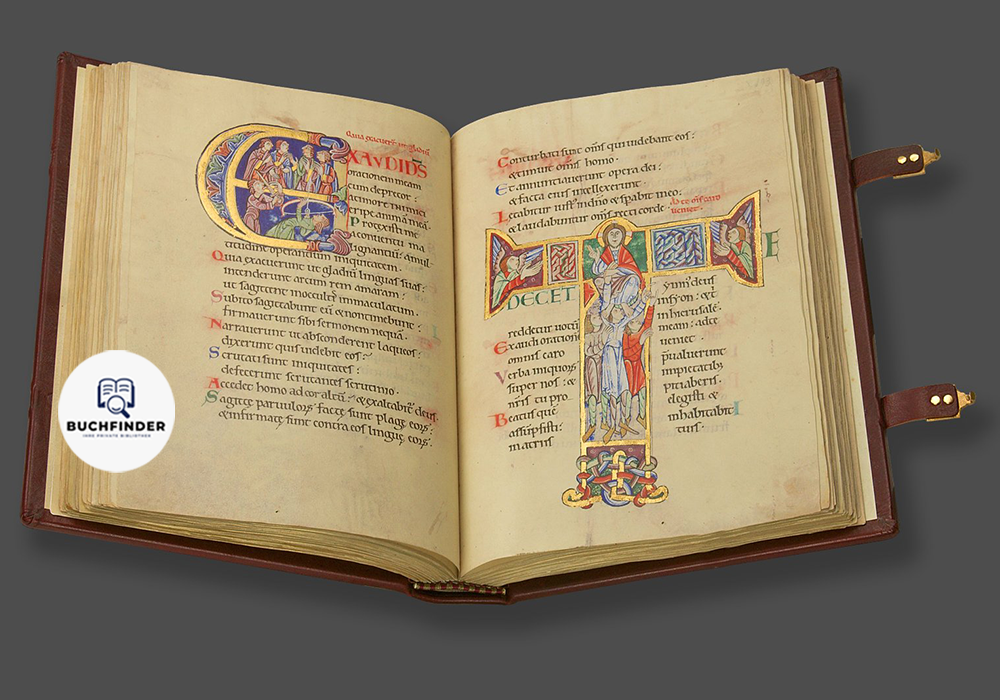 EXAUDI DS
orationem meam
cum deprecor:
atimore inimici
eripe animā meā.
Protexisti me
aconuentu ma
lignantiū: amul
titudine operantium iniquitatem.
Quia exacuerunt ut gladiū linguas suas:
intenderunt arcum rem amaram:
ut sagittent inoccultis immaculatum.
Subito sagittabunt eū & nontimebunt:
firmauerunt sibi sermonem nequā.
Narrauerunt ut absconderent laqueos:
dixerunt quis uidebit eos:
Scrutati sunt iniquitates:
defecerunt scrutantes scrutinio.
Accedet homo adcor altū: & exaltabit deus.
Sagitte paruulorꝝ facte sunt plage eorꝝ:
& infirmate sunt contra eos lingue eorꝝ.
Conturbati sunt om̄s qui uidebant eos:
& timuit omis homo.
Et annuntiauerunt opera dei:
& facta eius intellexerunt.
Letabitur iust' indño & spabit in eo:
& laudabuntur om̄s recti corde.
TE
DECET
ymn' deus
in syon: & t
reddetur uotū
in hierusalē.
Exaudi orationē
meam: ad te
omnis caro
ueniet.
Verba iniquorꝝ
p̄ualuerunt
super nos: &
impietatibꝫ
nr̄is tu pro
pitiaberis.
Beatus quē
elegisti &
assūpsisti:
inhabitabit
in atriis
tuis.
BUCHFINDER
IHRE PRIVATE BIBLIOTHEK